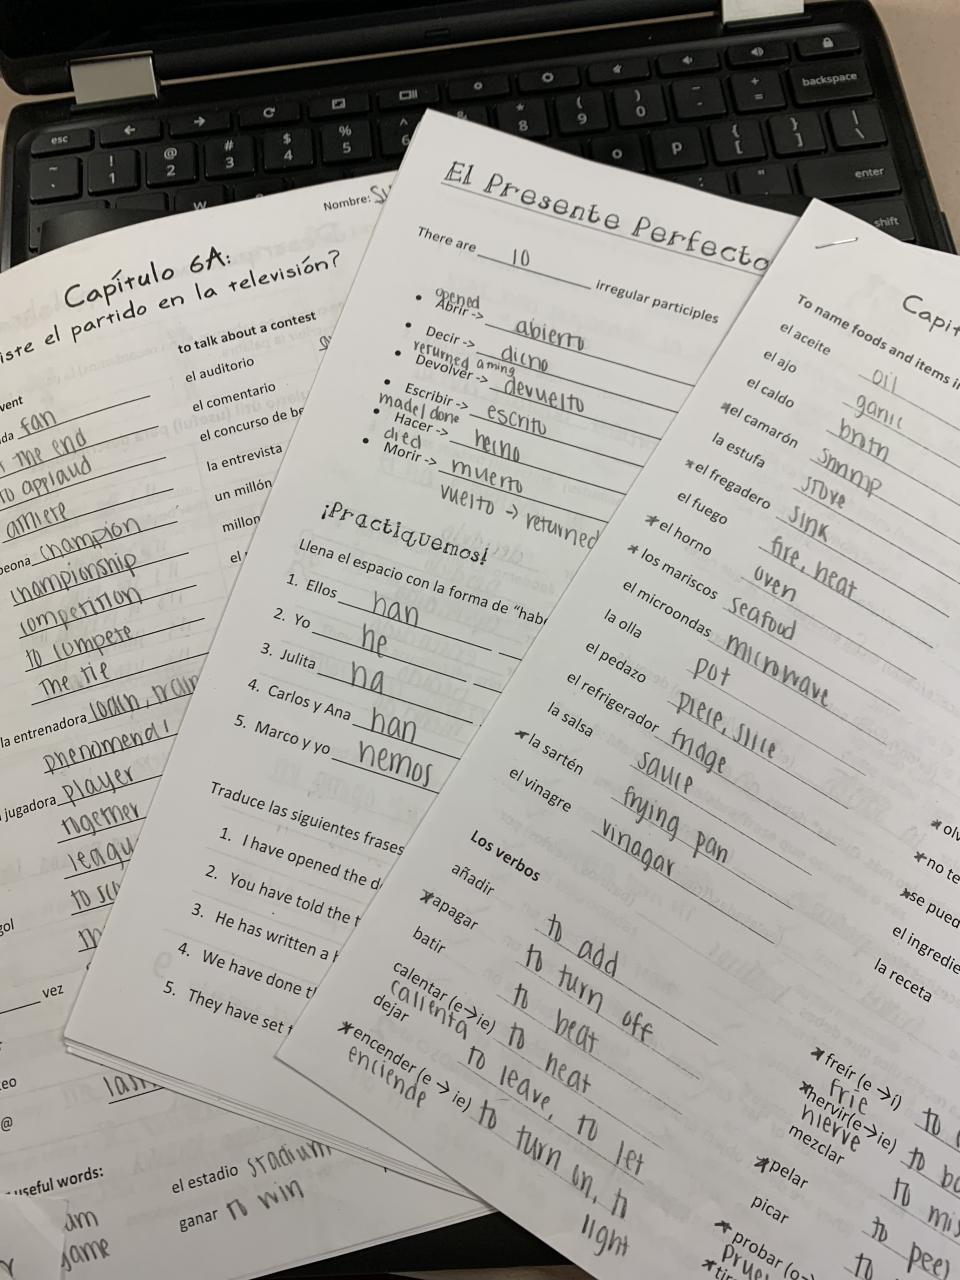 esc
backspace
enter
shift
! 1
@ 2
# 3
$ 4
% 5
^ 6
* 8
( 9
) 0
- 
+ =
W
o
p
{ [
} ]
| \
~ `
Nombre:
Capítulo 6A:
el partido en la televisión?
fan
the end
to applaud
athlete
champion
championship
competition
to compete
the tie
la entrenadora coach,
phenomenal
jugadora player
together
vez
useful words:
game
to talk about a contest
el auditorio
el comentario
el concurso de be
la entrevista
un millón
millon
el
el estadio stadium
ganar to win
El Presente Perfecto
There are 10 irregular participles
opened
• Abrir -> abierto
• Decir -> dicho
returned a thing
• Devolver -> devuelto
• Escribir -> escrito
made/done
• Hacer -> hecho
died
• Morir -> muerto
vuelto -> returned
¡Practiquemos!
Llena el espacio con la forma de "habe
1. Ellos han
2. Yo he
3. Julita ha
4. Carlos y Ana han
5. Marco y yo hemos
Traduce las siguientes frases
1. I have opened the d
2. You have told the t
3. He has written a
4. We have done th
5. They have set
Capit
To name foods and items i
el aceite oil
el ajo garlic
el caldo broth
*el camarón shrimp
la estufa stove
*el fregadero sink
el fuego fire, heat
*el horno oven
*los mariscos seafood
el microondas microwave
la olla pot
el pedazo piece, slice
el refrigerador fridge
la salsa sauce
*la sartén frying pan
el vinagre vinagar
Los verbos
añadir to add
*apagar to turn off
batir to beat
calentar (e->ie) to heat
calienta
dejar to leave, to let
*encender (e -> ie) to turn on, to
enciende
light
*olv
*no te
*se pued
el ingredie
la receta
*freír (e ->i) to
fríe
*hervir(e->ie) to bo
hierve
mezclar to mi
*pelar to peel
picar to
*probar (o->
prue
*tir